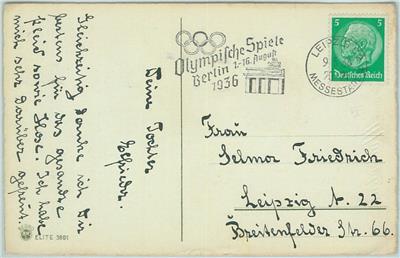 Gleichzeitig danke ich Dir
bestens für das gesandte
Kleid sowie Hose. Ich habe
mich sehr darüber gefreut.
Deine Tochter
Elfriede.
ELITE 3881
Olympische Spiele
Berlin 1.-16. August
1936
LEIPZIG
9
MESSESTADT
5 5
Deutsches Reich
Frau
Selmar Friedrich
Leipzig N. 22
Breitenfelder Str. 66.